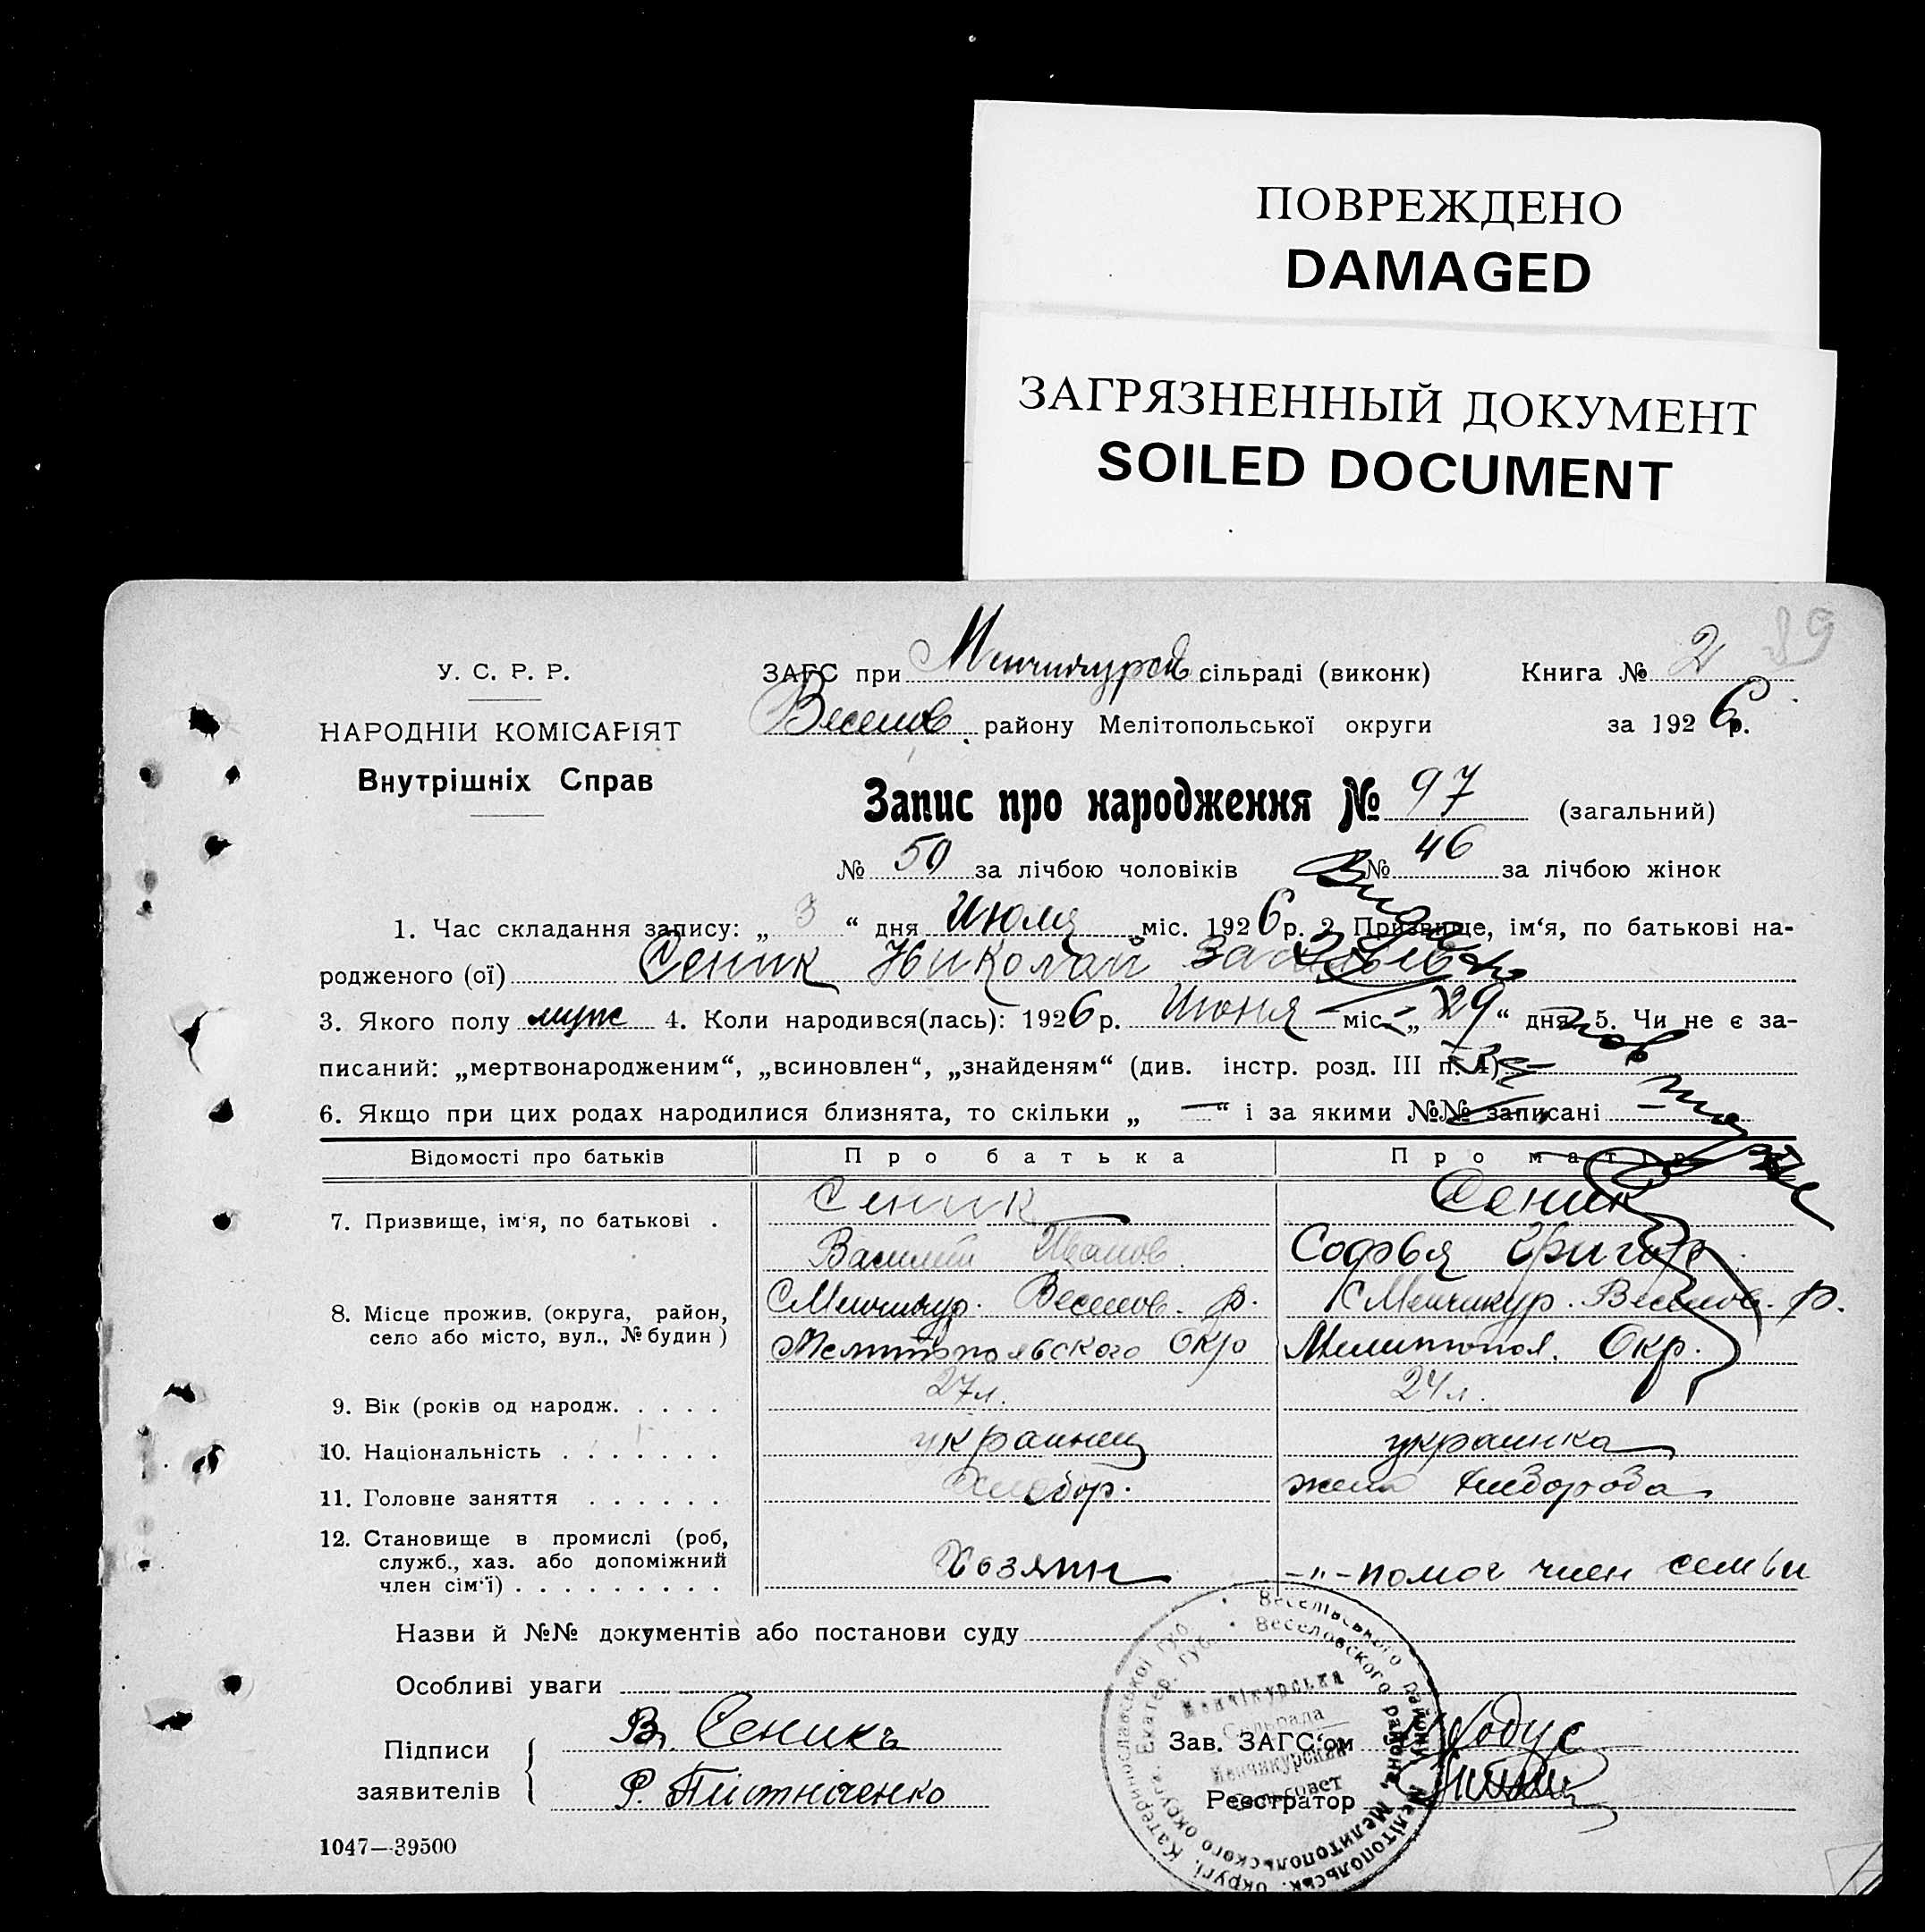 ПОВРЕЖДЕНО
DAMAGED
ЗАГРЯЗНЕННЫЙ ДОКУМЕНТ
SOILED DOCUMENT
89
У. С. Р. Р.
НАРОДНІЙ КОМІСАРІЯТ
Внутрішніх Справ
ЗАГС при Менчикурск. сільраді (виконк) Книга № 2
Веселов. району Мелітопольської округи за 1926 р.
Запис про народження № 97 (загальний)
№ 50 за лічбою чоловіків № 46 за лічбою жінок
1. Час складання запису: „ 3 “ дня Июля міс. 1926 р. 2 Призвище, ім‘я, по батькові на-
родженого (ої) Сеник Николай Васильев
3. Якого полу муж 4. Коли народився(лась): 1926 р. Июня міс. „ 29 “ дня 5. Чи не є за-
писаний: „мертвонародженим“, „всиновлен“, „знайденям“ (див. інстр. розд. III п. 4) —
6. Якщо при цих родах народилися близнята, то скільки „ — “ і за якими №№ записані —
Відомості про батьків Про батька Про матір
7. Призвище, ім‘я, по батькові . Сеник Сеник
Василий Иванов. Софья Григор.
8. Місце прожив. (округа, район, С Менчикур. Веселов. р. С Менчикур. Веселов. р.
село або місто, вул., № будин) Мелитопольского Окр Мелитопол. Окр.
9. Вік (років од народж. . . . . 27 л. 24 л.
10. Національність . . . . . . . украинец украинка
11. Головне заняття . . . . . . Хлебор. жена хлебороба
12. Становище в промислі (роб,
служб., хаз. або допоміжний
член сім‘ї) . . . . . . . . . Хозяин -"- помог член семьи
Назви й №№ документів або постанови суду
Особливі уваги
Підписи
заявителів
В. Сеникъ
Зав. ЗАГС‘ом
Реєстратор
1047—39500
Веселівського району, Мелітопольськ. округи, Катеринославської губ.
Веселовского района, Мелитопольского округа, Екатер. губ.
Менчікурська
Сільрада
Менчикурский
Сельсовет